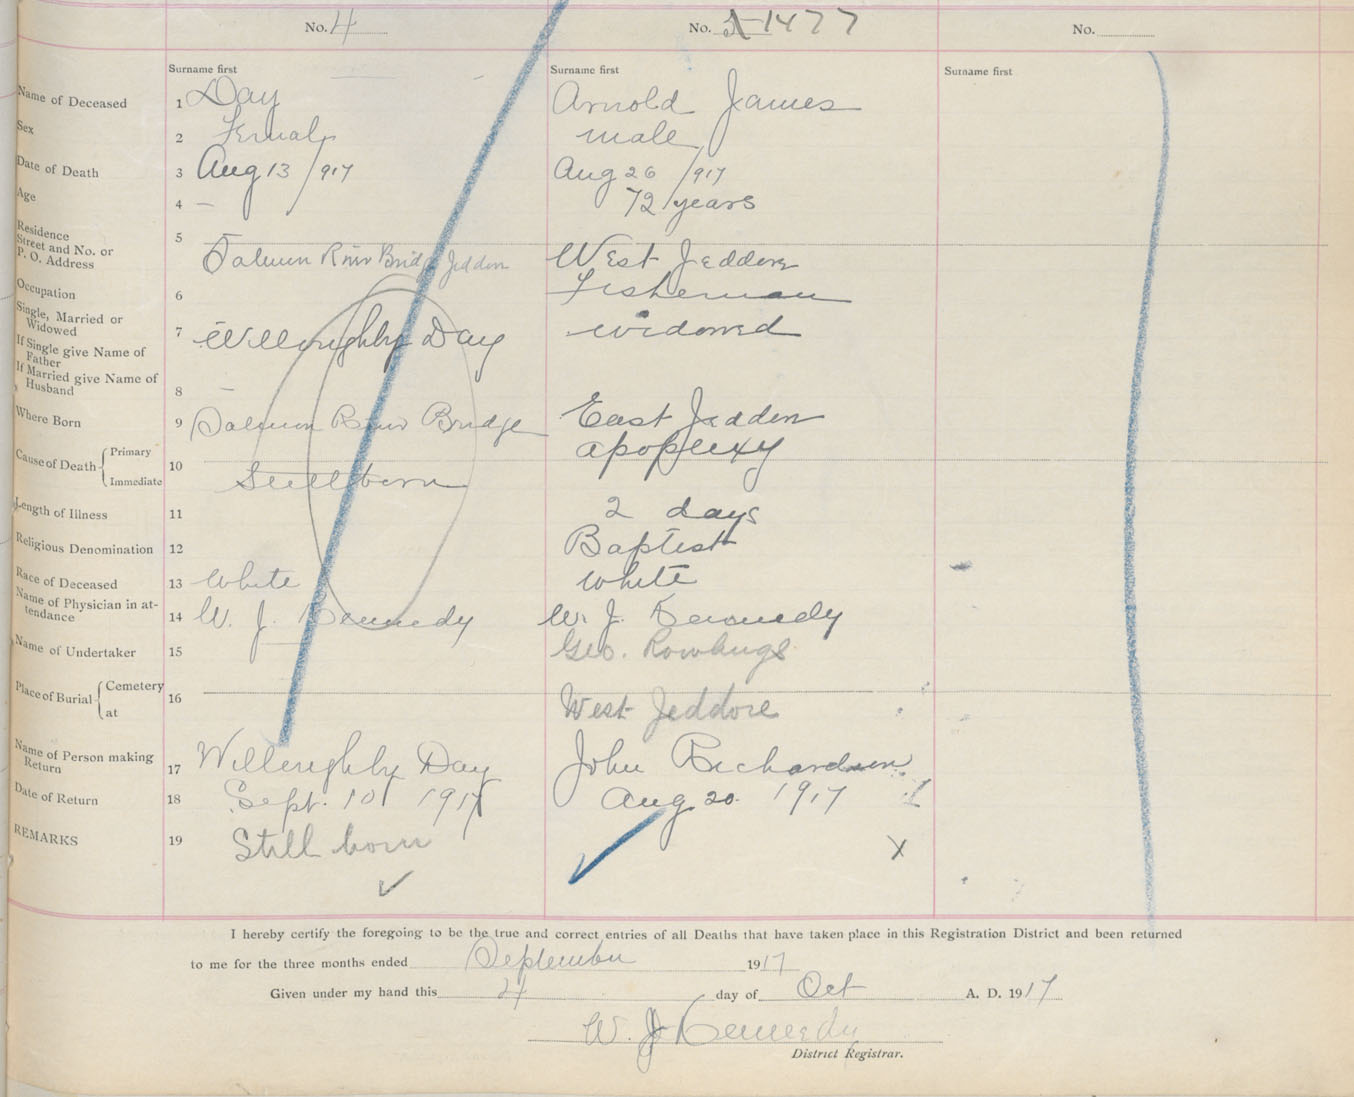 No. 4 No. 1477 No.
Surname first Surname first Surname first
Name of Deceased 1 Day Arnold James
Sex 2 Female male
Date of Death 3 Aug 13/917 Aug 26/917
Age 4 — 72 years
Residence
Street and No. or
P. O. Address 5 Salmon River Bridge Jeddore West Jeddore
Occupation 6 Fisherman
Single, Married or
Widowed 7 Willoughby Day widowed
If Single give Name of
Father
If Married give Name of
Husband 8 —
Where Born 9 Salmon River Bridge East Jeddore
Cause of Death { Primary 10 apoplexy
Immediate Stillborn
Length of Illness 11 2 days
Religious Denomination 12 Baptist
Race of Deceased 13 White white
Name of Physician in at-
tendance 14 W. J. Kennedy W. J. Kennedy
Name of Undertaker 15 Geo.
Place of Burial { Cemetery 16
at West Jeddore
Name of Person making
Return 17 Willoughby Day John Richardson
Date of Return 18 Sept. 10 1917 Aug 20. 1917
REMARKS 19 Still born X
I hereby certify the foregoing to be the true and correct entries of all Deaths that have taken place in this Registration District and been returned
to me for the three months ended September 1917
Given under my hand this day of Oct A. D. 1917
W. J Kennedy
District Registrar.